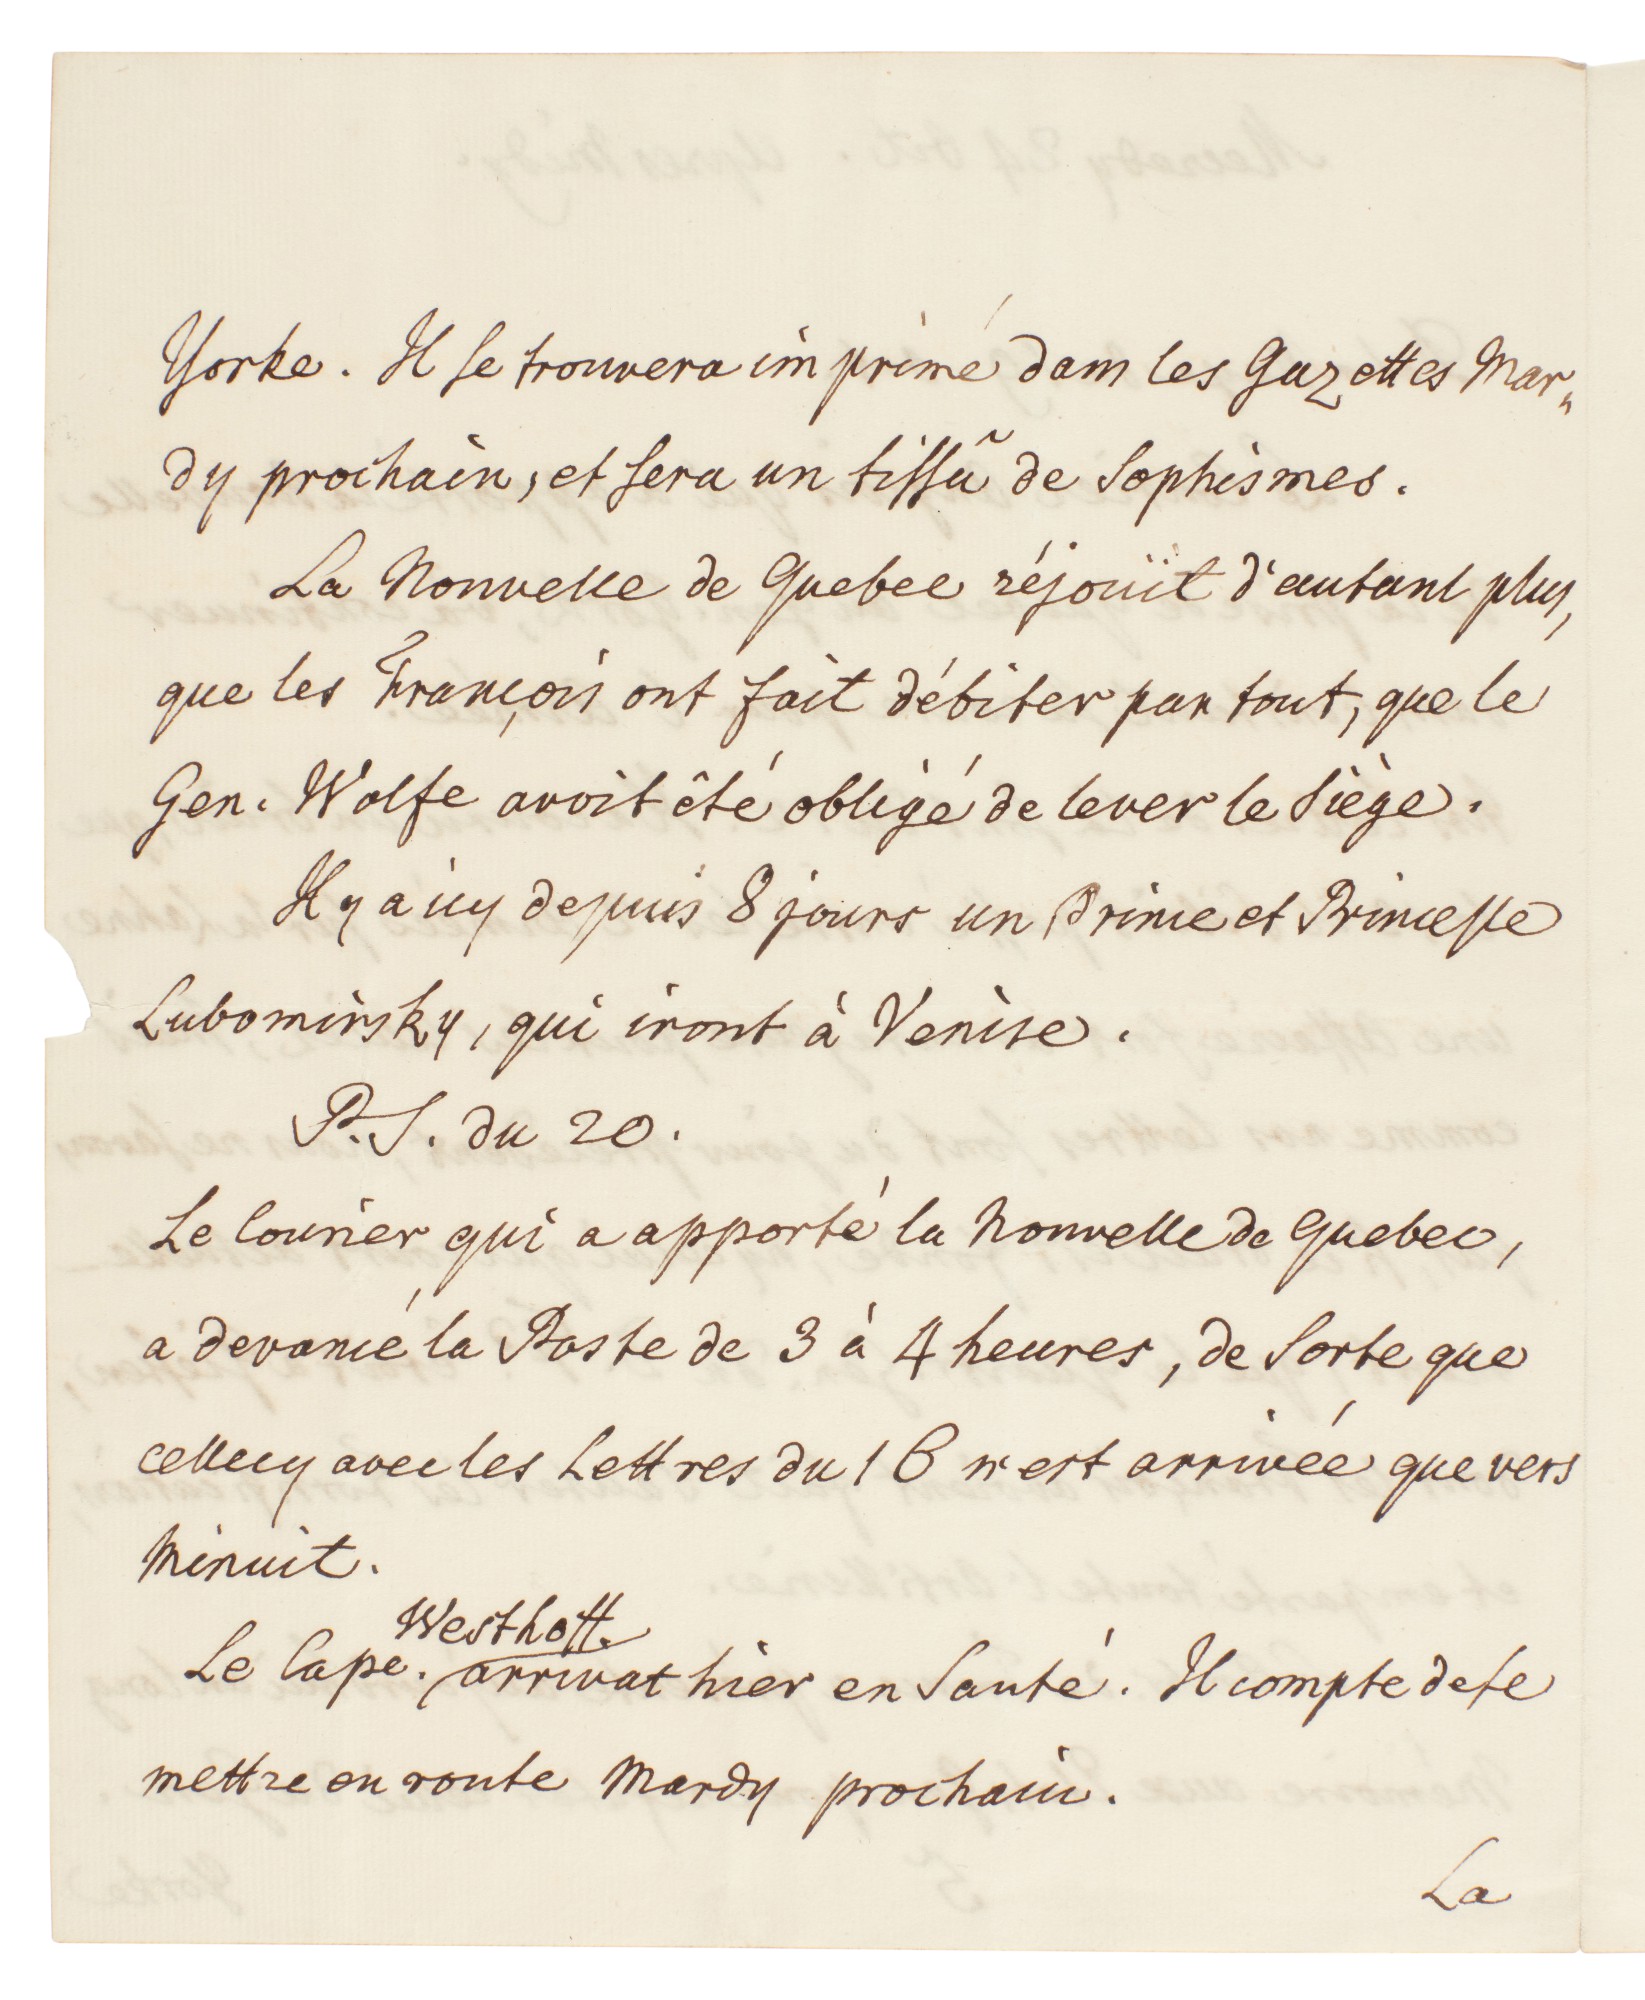 Yorke. Il se trouvera imprimé dans les Gazettes Mar„
dy prochain, et sera un tissû de Sophismes.
La Nouvelle de Quebec réjouït d'autant plus,
que les François ont fait débiter par tout, que le
Gen. Wolfe avoit été obligé de lever le Siège.
Il y a icy depuis 8 jours un Prince et Princesse
Lubomirsky, qui iront à Venise.
P.S. du 20.
Le Courier qui a apporté la Nouvelle de Quebec,
a devancé la Poste de 3 à 4 heures, de Sorte que
cellecy avec les Lettres du 16 n'est arrivée que vers
Minuit.
Westhoff
Le Cape. arrivat hier en Santé. Il compte de se
mettre en route Mardy prochain.
La